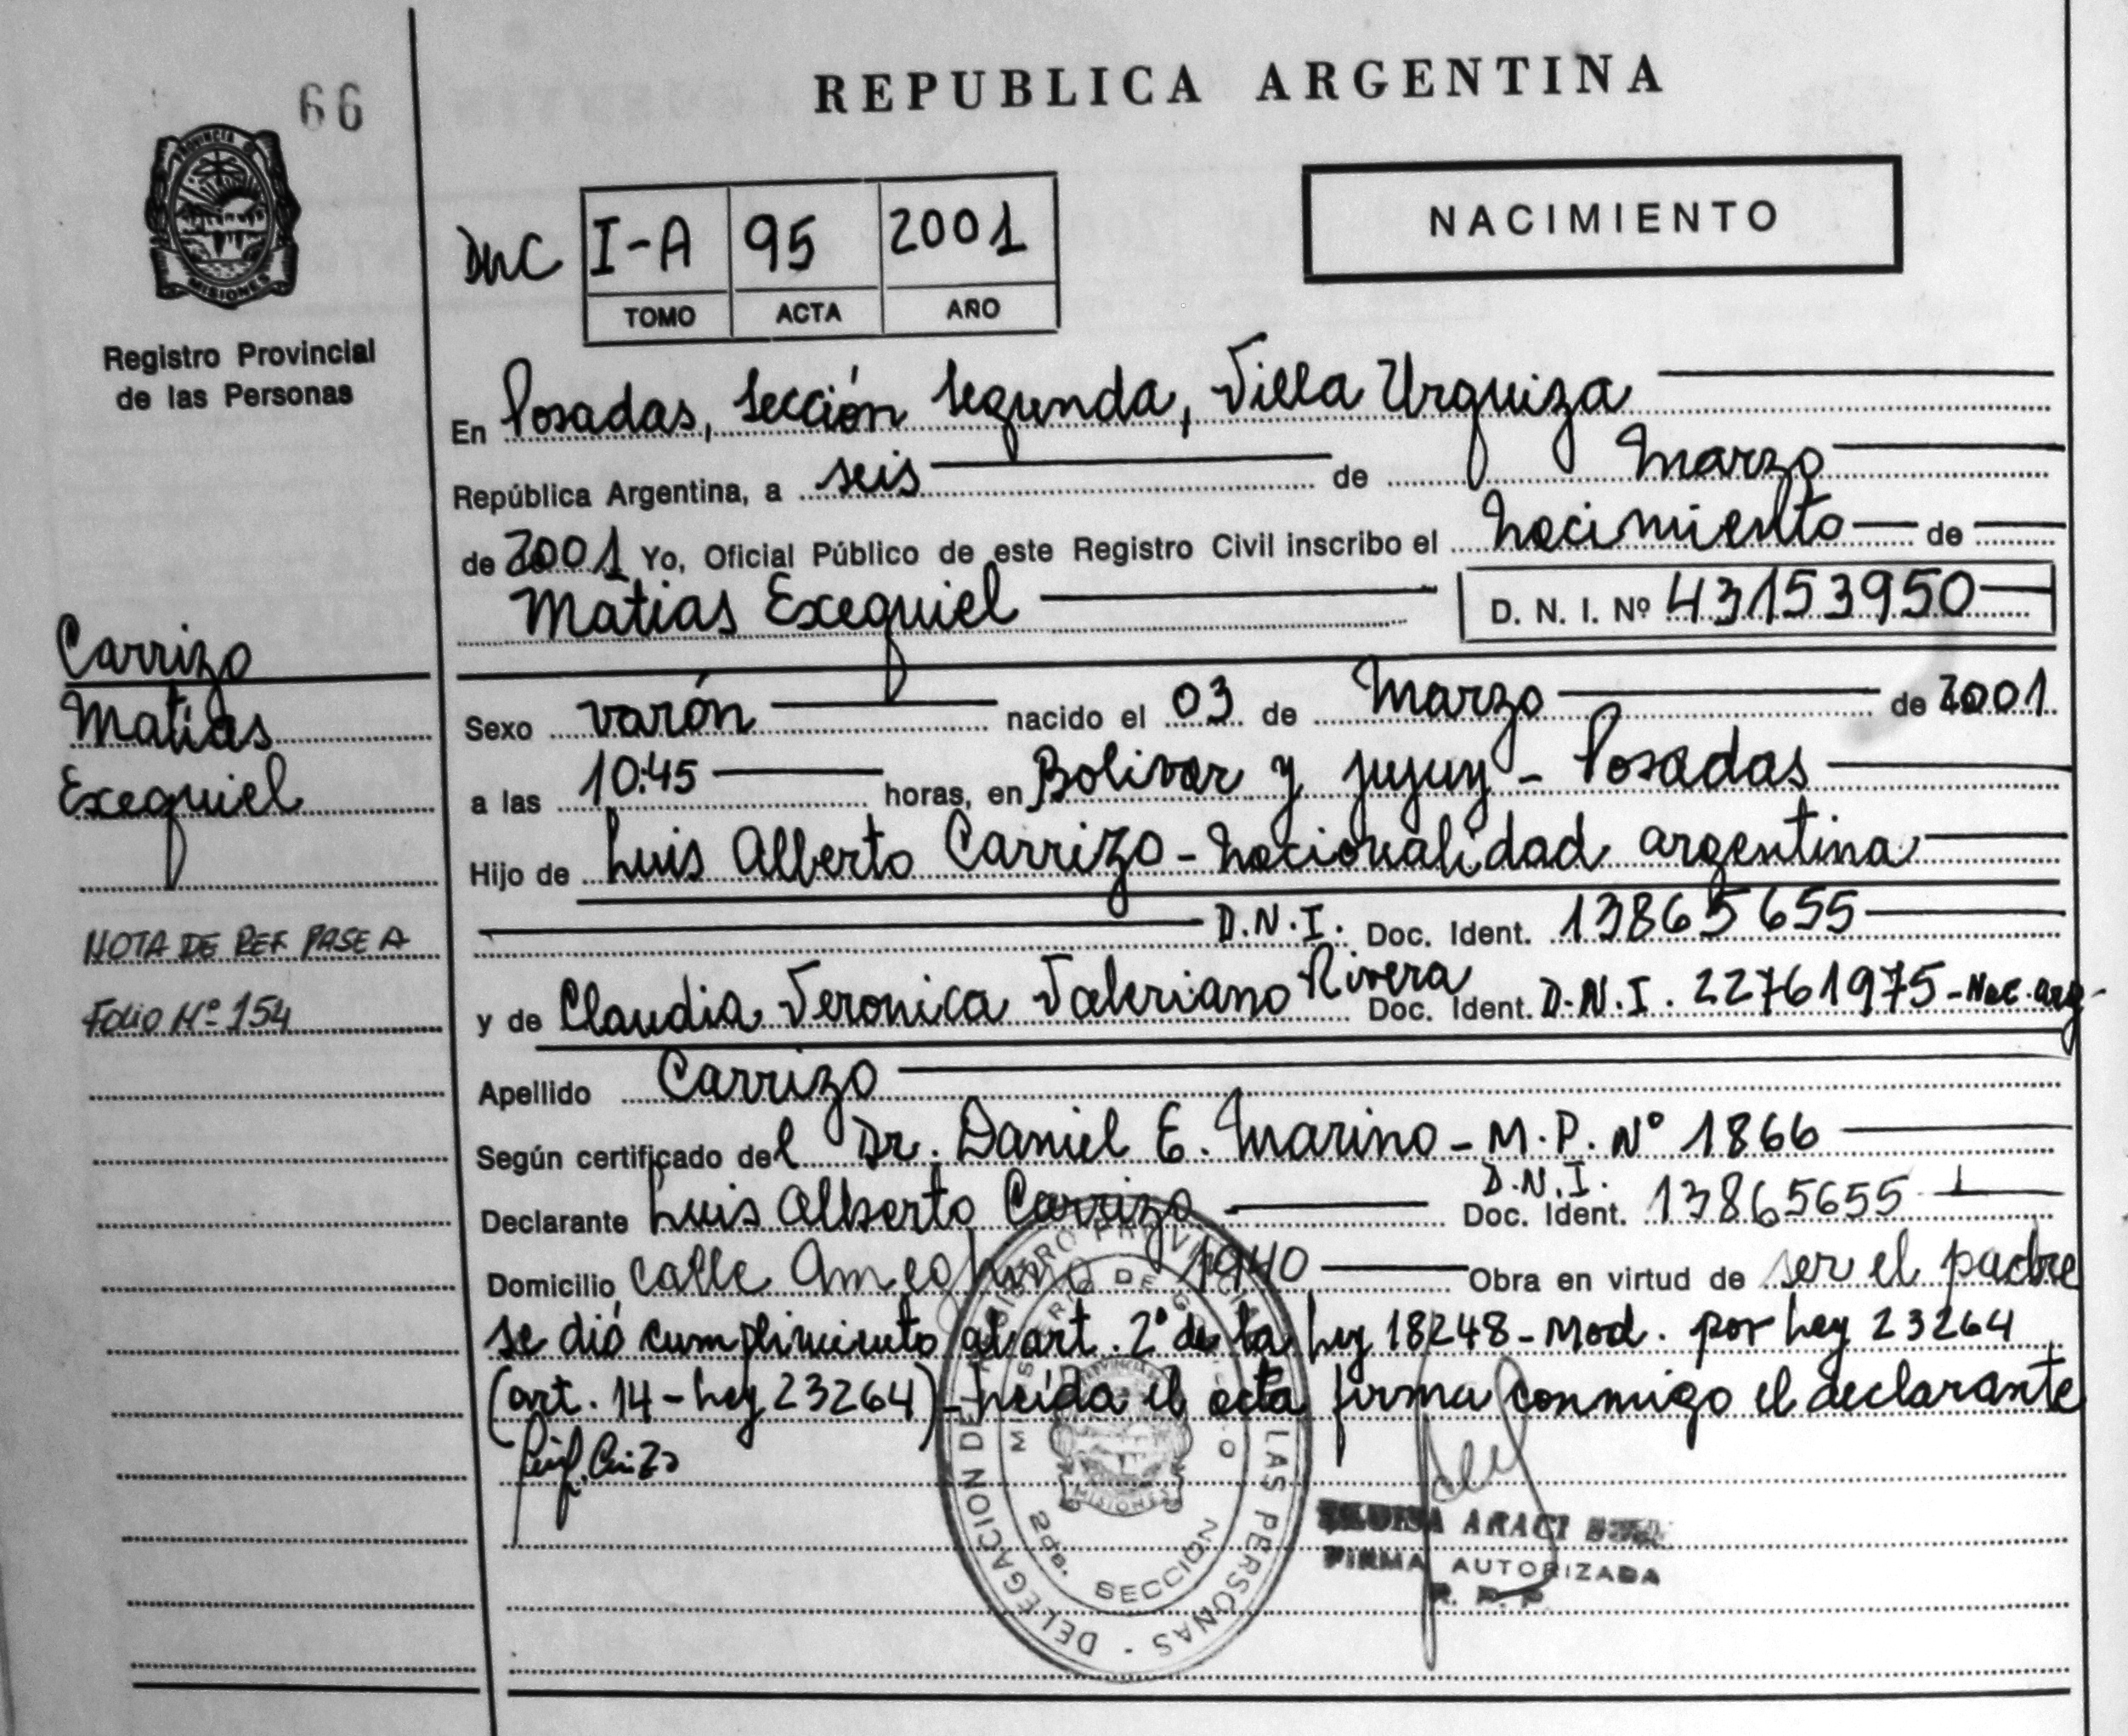 66
PROVINCIA DE
MISIONES
Registro Provincial
de las Personas
Carrizo
Matias
Exequiel
NOTA DE REF. PASE A
FOLIO Nº 154
REPUBLICA ARGENTINA
NACIMIENTO
I-A 95 2001
TOMO ACTA AÑO
En Posadas, Sección Segunda, Villa Urquiza
República Argentina, a seis de Marzo
de 2001 Yo, Oficial Público de este Registro Civil inscribo el Nacimiento de
Matias Exequiel D. N. I. Nº 43153950
Sexo varón nacido el 03 de Marzo de 2001
a las 10:45 horas, en Bolivar y Jujuy - Posadas
Hijo de Luis Alberto Carrizo - Nacionalidad argentina
D.N.I. Doc. Ident. 13865655
y de Claudia Veronica Valeriano Rivera Doc. Ident. D.N.I. 22761975 - Nac. arg-
Apellido Carrizo
Según certificado del Dr. Daniel E. Marino - M.P. Nº 1866
Declarante Luis Alberto Carrizo D.N.I. Doc. Ident. 13865655
Domicilio Calle 1940 Obra en virtud de ser el padre
se dió cumplimiento al art. 2º de la Ley 18248 - Mod. por Ley 23264
(art. 14 - Ley 23264) - Leída el acta firma conmigo el declarante
DELEGACION DEL REGISTRO PROVINCIAL DE LAS PERSONAS
MINISTERIO DE GOBIERNO
MISIONES
SECCION
ARACI
FIRMA AUTORIZADA
R. P. P.